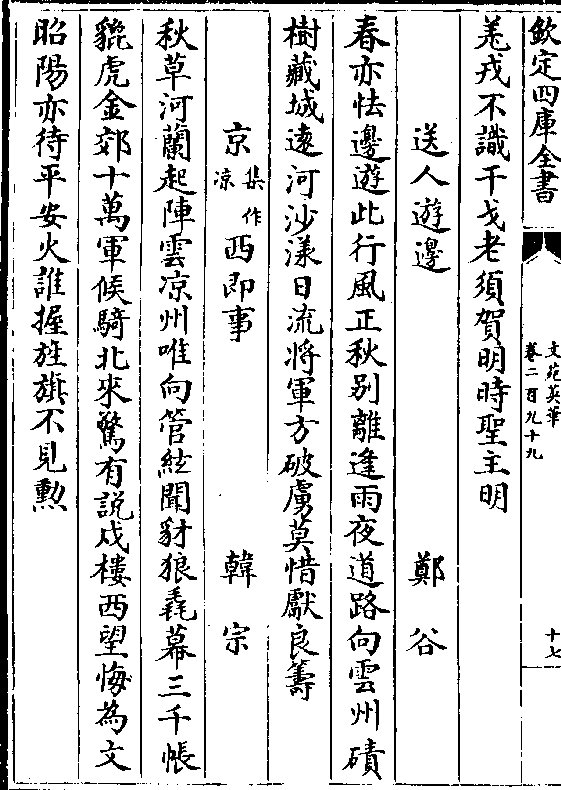 欽定四庫全書
文苑英華
卷二百九十九
十七
羗戎不識干戈老須賀明時聖主明
送人遊邊
鄭谷
春亦怯邊遊此行風正秋别離逢雨夜道路向雲州磧
樹藏城逺河沙漾日流將軍方破虜莫惜獻良籌
京集作凉西即事
韓宗
秋草河蘭起陣雲凉州唯向管絃聞豺狼毳幕三千帳
貔虎金郊十萬軍候騎北來驚有説戍樓西望悔為文
昭陽亦待平安火誰握旌旗不見勲